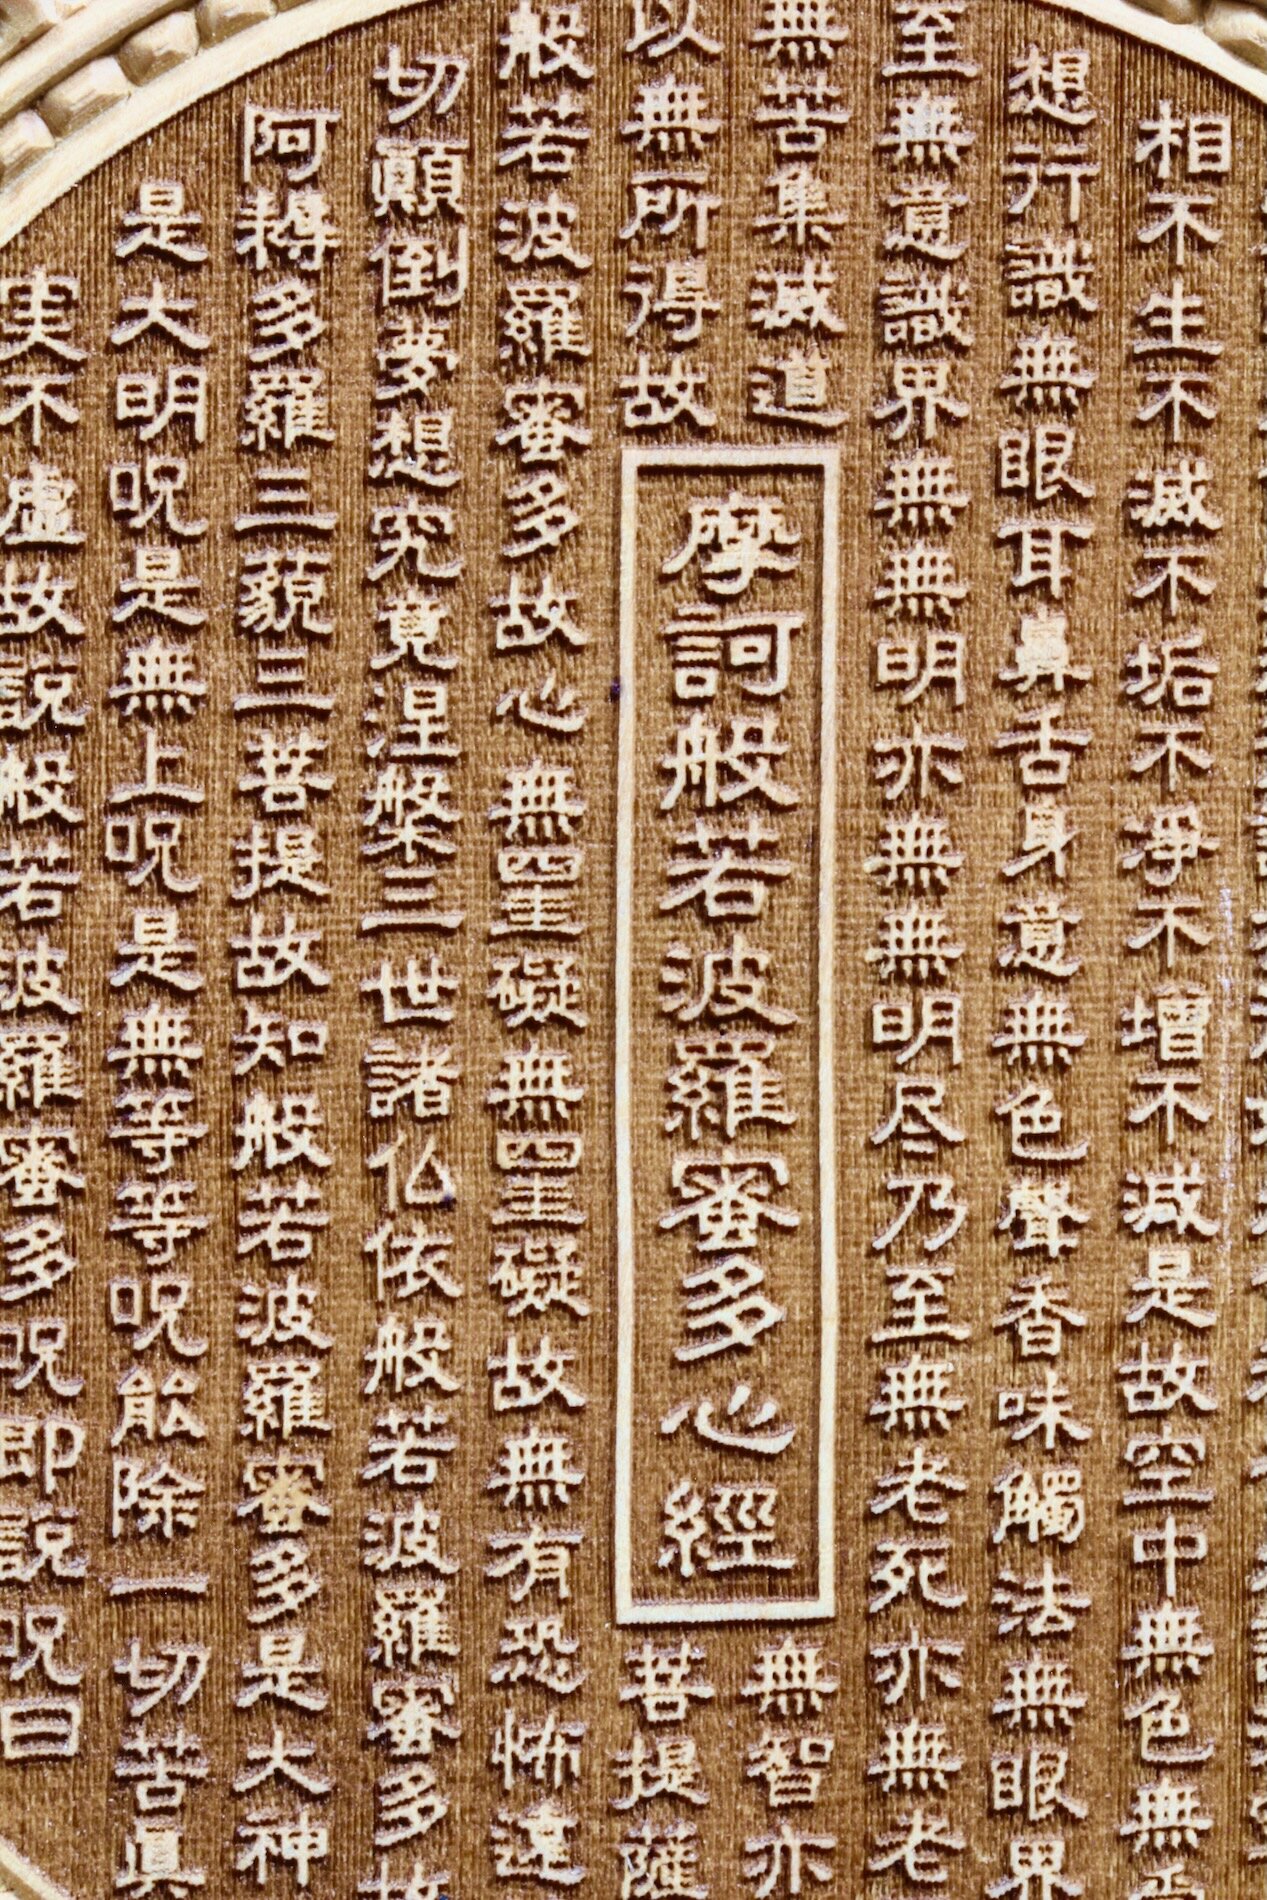 相不生不滅不垢不淨不增不減是故空中無色無
想行識無眼耳鼻舌身意無色聲香味觸法無眼界
至無意識界無無明亦無無明尽乃至無老死亦無老
無苦集滅道
無智亦
以無所得故
菩提薩
摩訶般若波羅蜜多心經
般若波羅蜜多故心無罣礙無罣礙故無有恐怖遠
切顛倒夢想究竟涅槃三世諸仏依般若波羅蜜多故
阿耨多羅三藐三菩提故知般若波羅蜜多是大神
是大明呪是無上呪是無等等呪能除一切苦眞
実不虚故説般若波羅蜜多呪即説呪曰